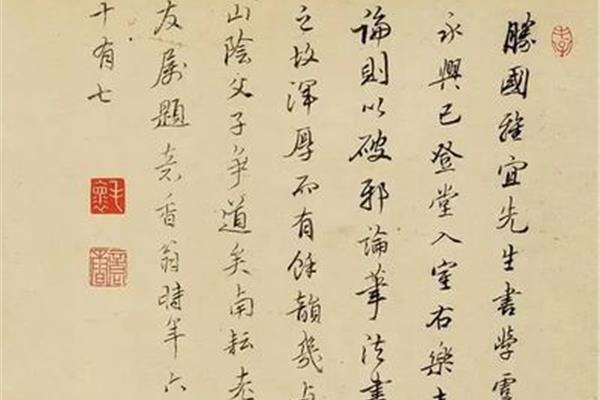 勝國雅宜先生書學虞
永興已登堂入室右樂
論則以破邪論筆法書
之故渾厚而有餘韻幾与
山陰父子爭道矣南耘老
友属題意香翁時年六
十有七
毛懷
意香